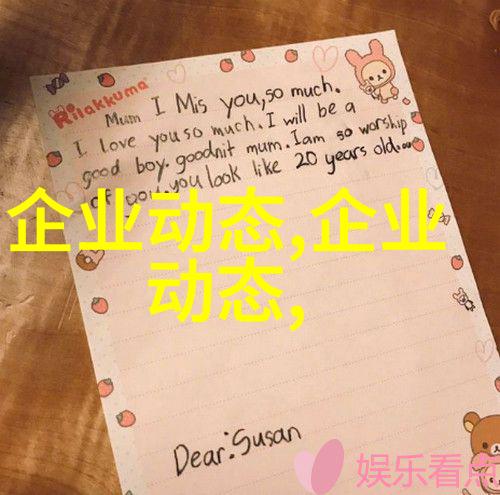 Rilakkuma
Mum I Mis you,so much.
I love you so much. I will be a
good boy. goodnit mum. I am so worship
of you. you look like 20 years old...
企业动态,企业
动态,
Dear: Susan
娱乐看点